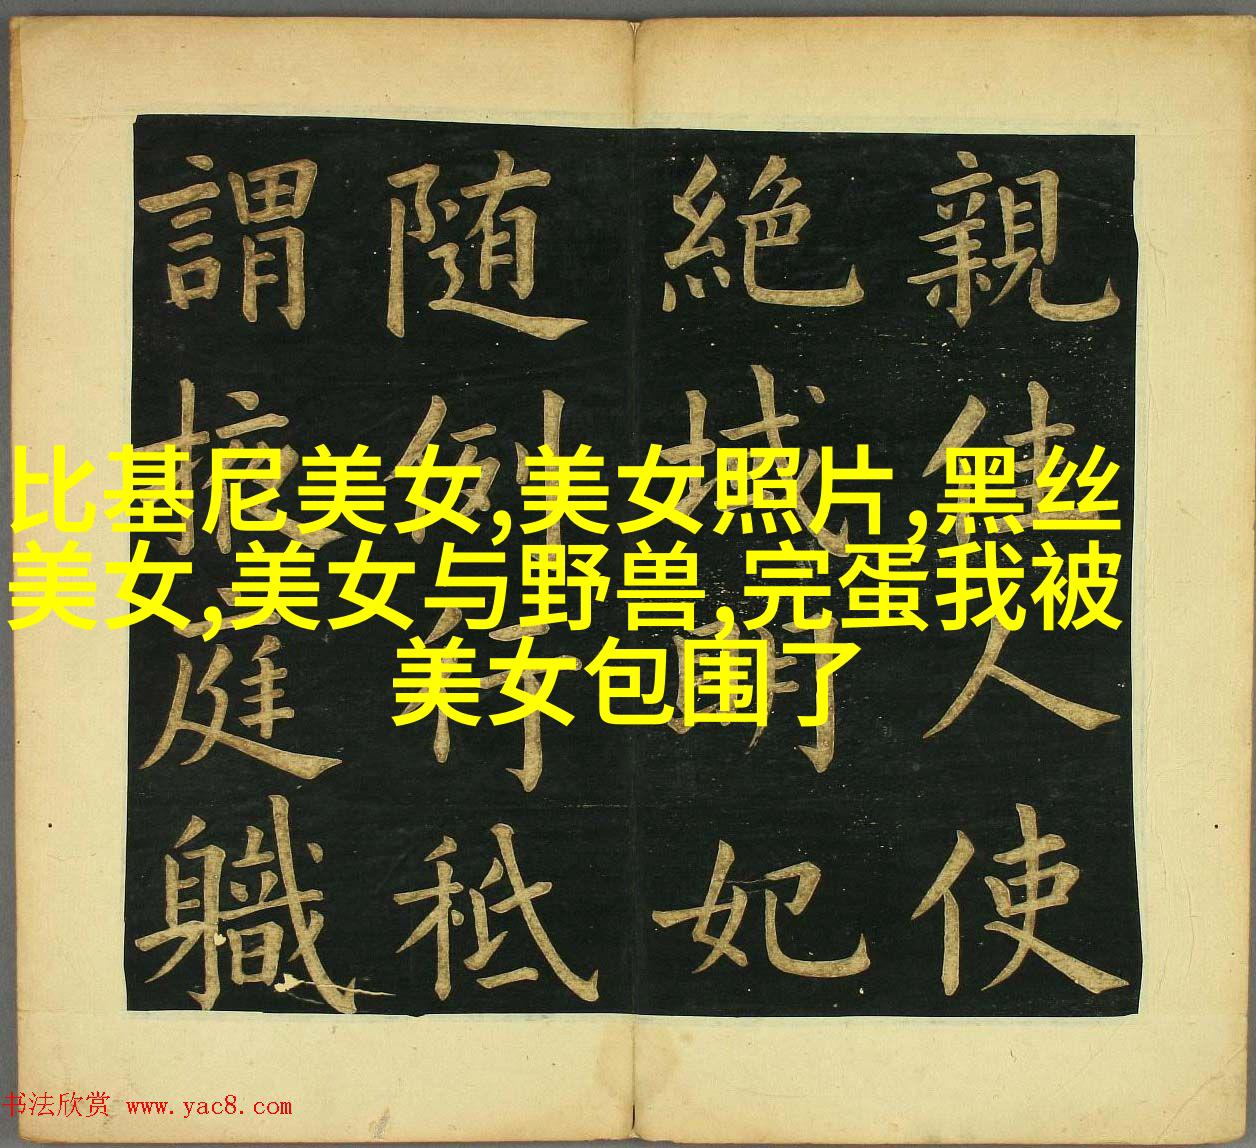 親佳人使
絶域明妃
随例行秪
謂掖庭職
比基尼美女,美女照片,黑丝
美女,美女与野兽,完蛋我被
美女包围了
书法欣赏 www.yac8.com